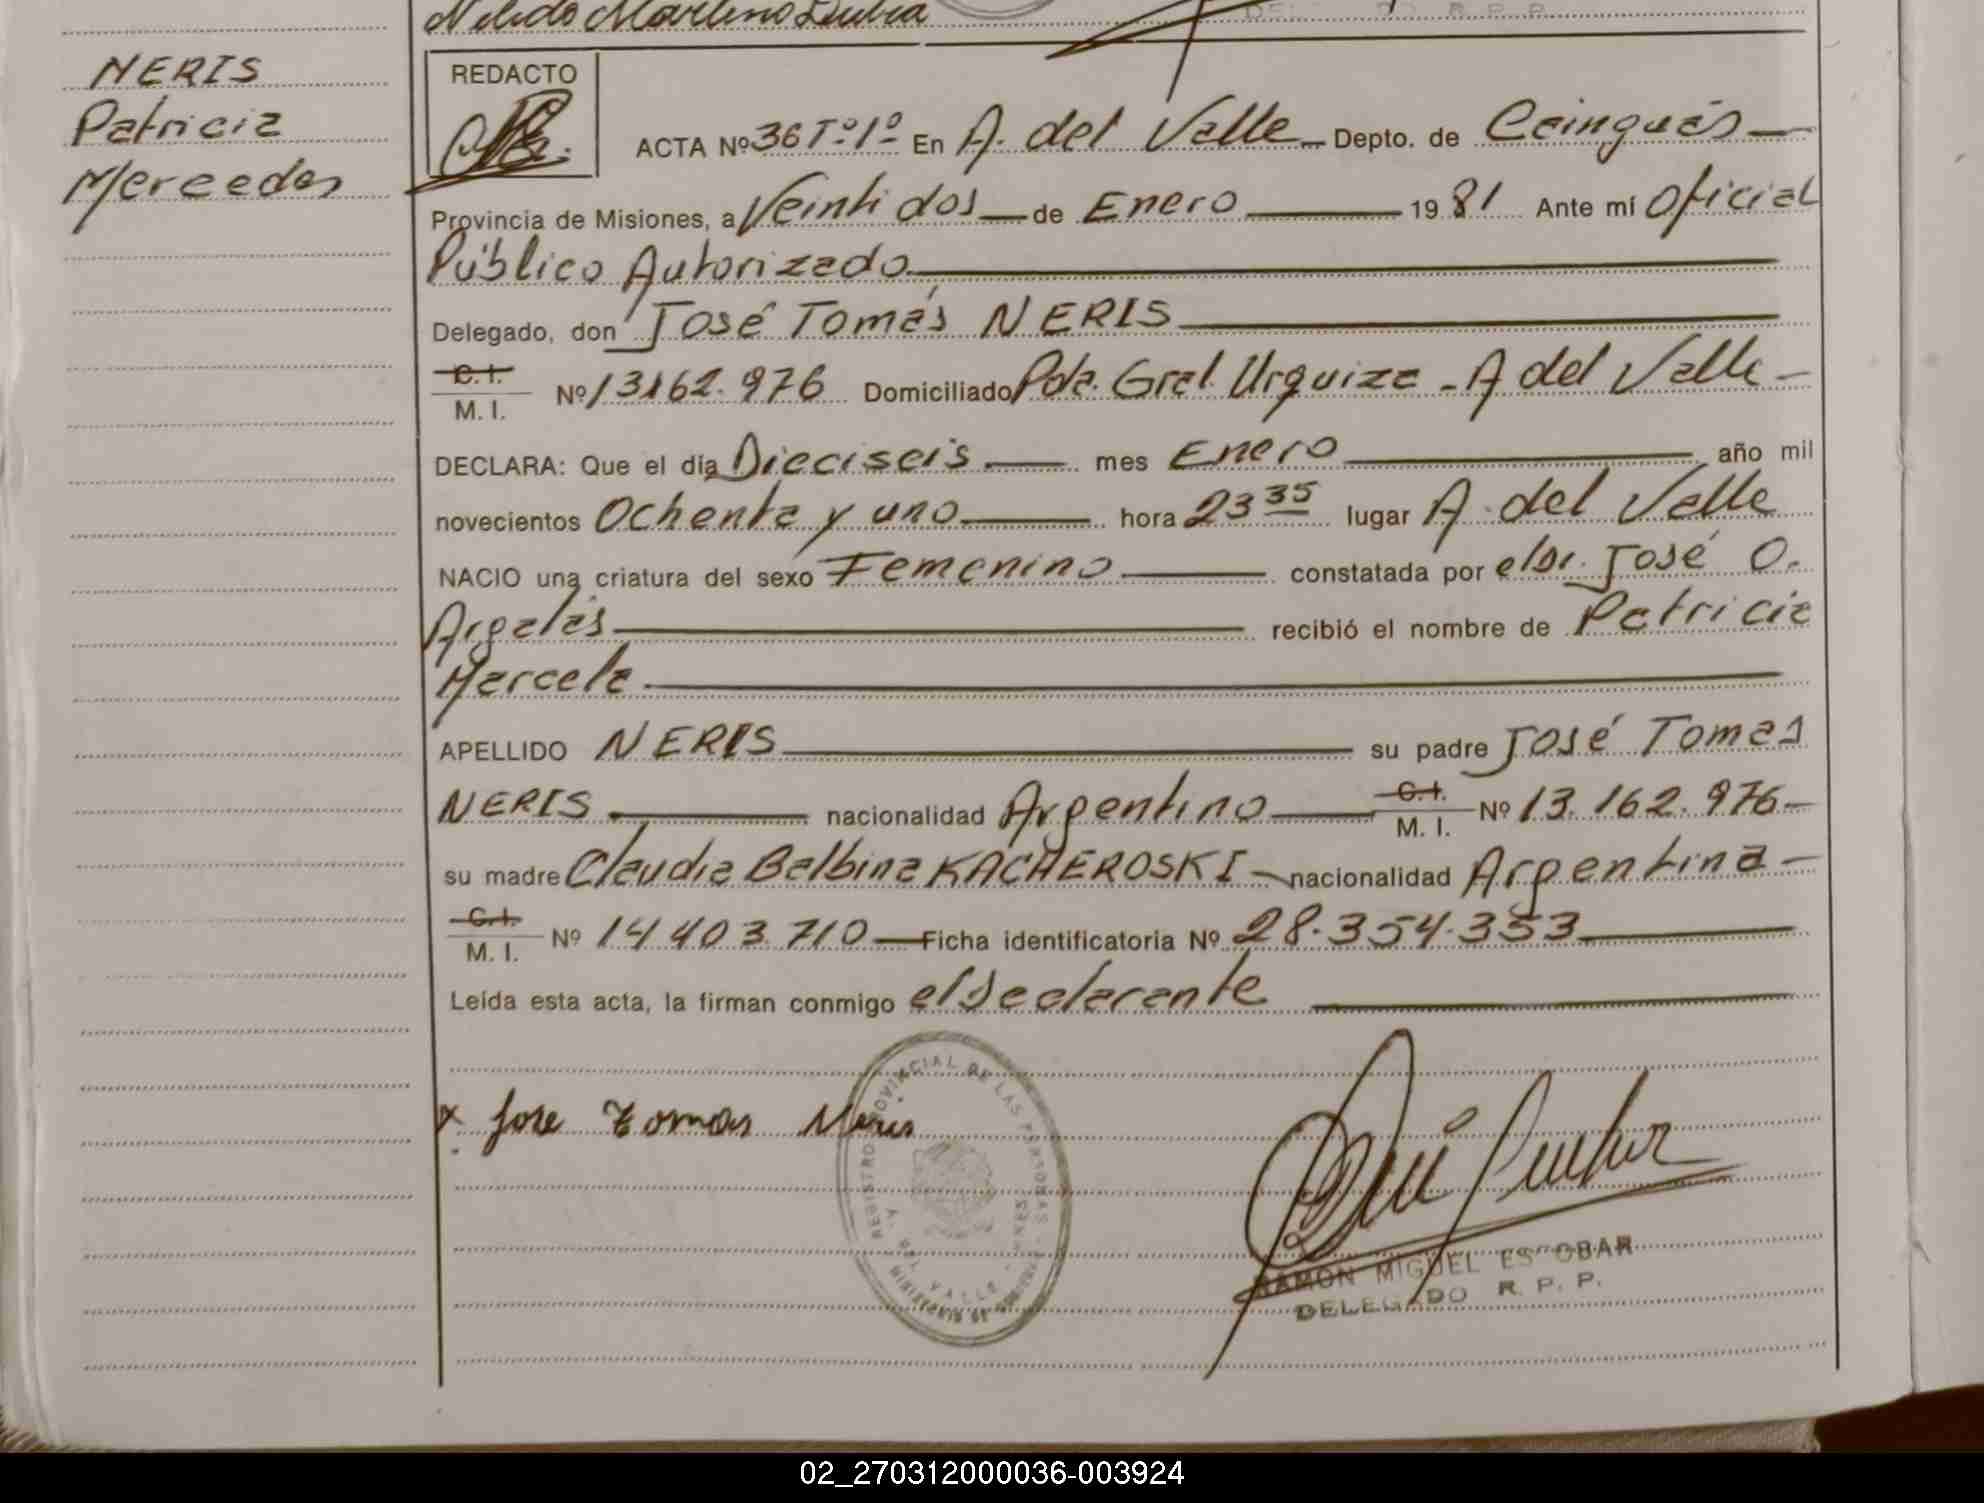 NERIS
Patricia
Mercedes
Nelido Martino
REDACTO
ACTA Nº 36 Tº 1º En A. del Valle Depto. de Cainguás
Provincia de Misiones, a Veintidos de Enero 1981 Ante mí Oficial
Público Autorizado
Delegado, don José Tomás NERIS
C. I.
M. I. Nº 13162.976 Domiciliado Pda. Gral. Urquiza - A del Valle -
DECLARA: Que el día Dieciseis mes Enero año mil
novecientos Ochenta y uno hora 23 35 lugar A. del Valle
NACIO una criatura del sexo Femenino constatada por el Dr. José O.
Argatás recibió el nombre de Patricia
Marcela
APELLIDO NERIS su padre José Tomas
NERIS nacionalidad Argentino C. I. M. I. Nº 13.162.976
su madre Claudia Balbina KACHEROSKI nacionalidad Argentina
C. I.
M. I. Nº 14 403.710 Ficha identificatoria Nº 28.354.353
Leída esta acta, la firman conmigo el declarante
x Jose Tomas Neris
REGISTRO PROVINCIAL DE LAS PERSONAS
A. DEL VALLE
RAMON MIGUEL ESCOBAR
DELEGADO R. P. P.
02_270312000036-003924